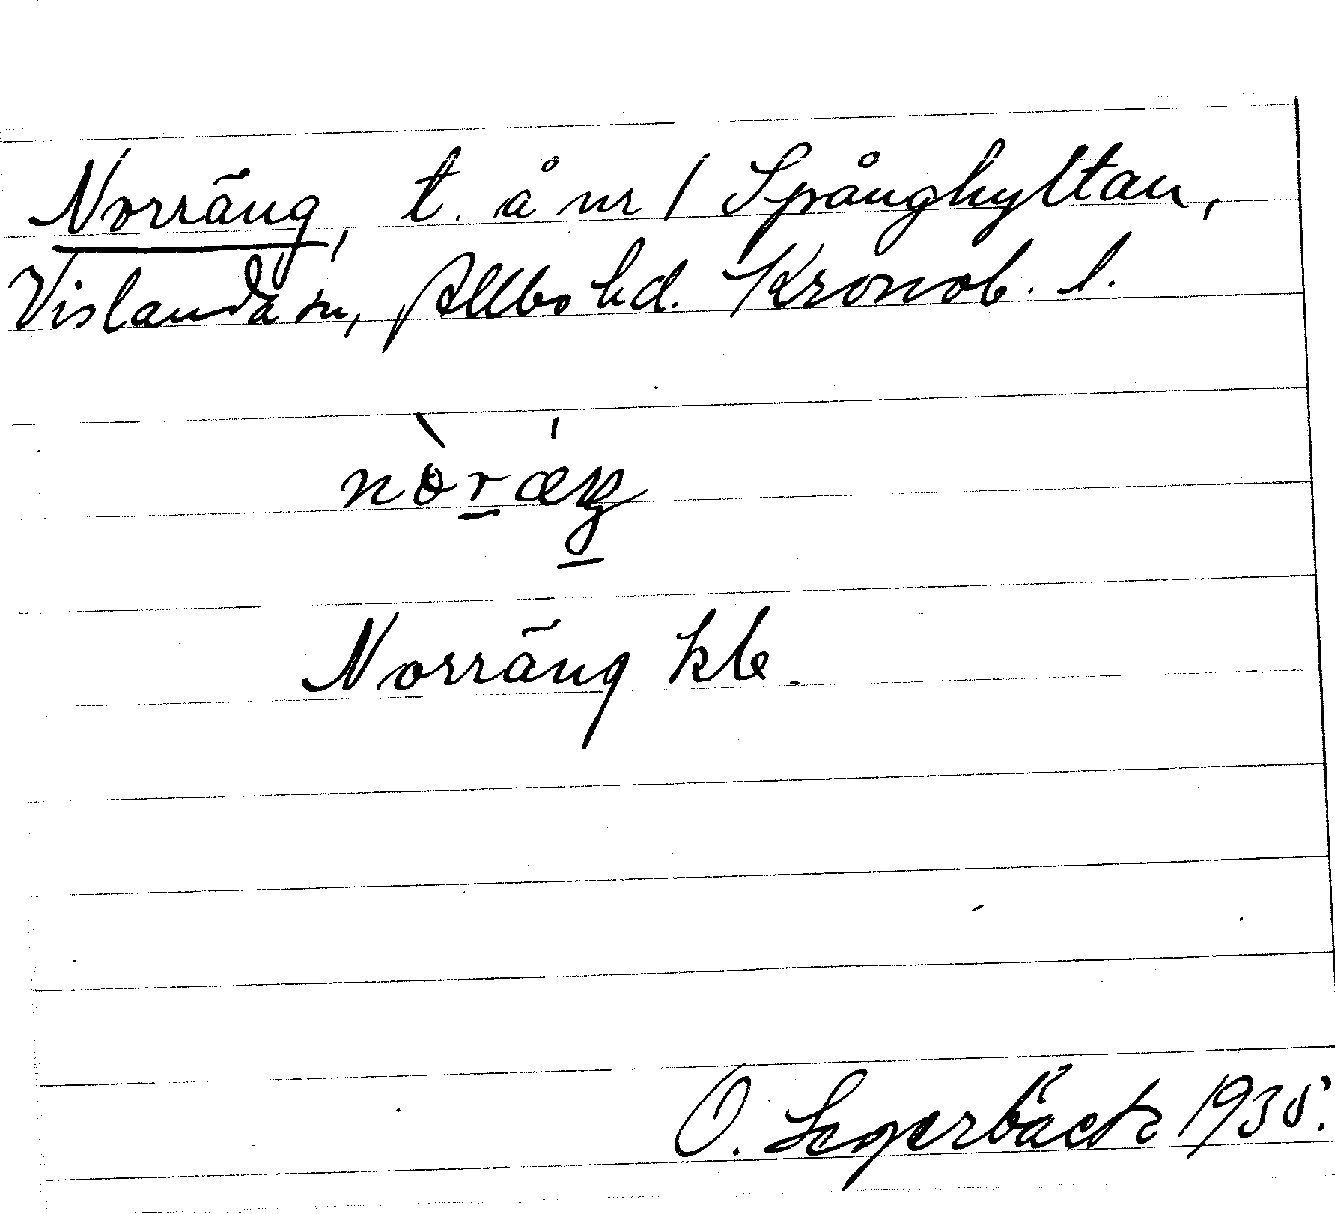 Norräng, t. å nr 1 Spånghyltan,
Vislanda sn, Allbo hd. Kronob. l.
nòræŋ
Norräng kb
O. Segerbäck 1935.